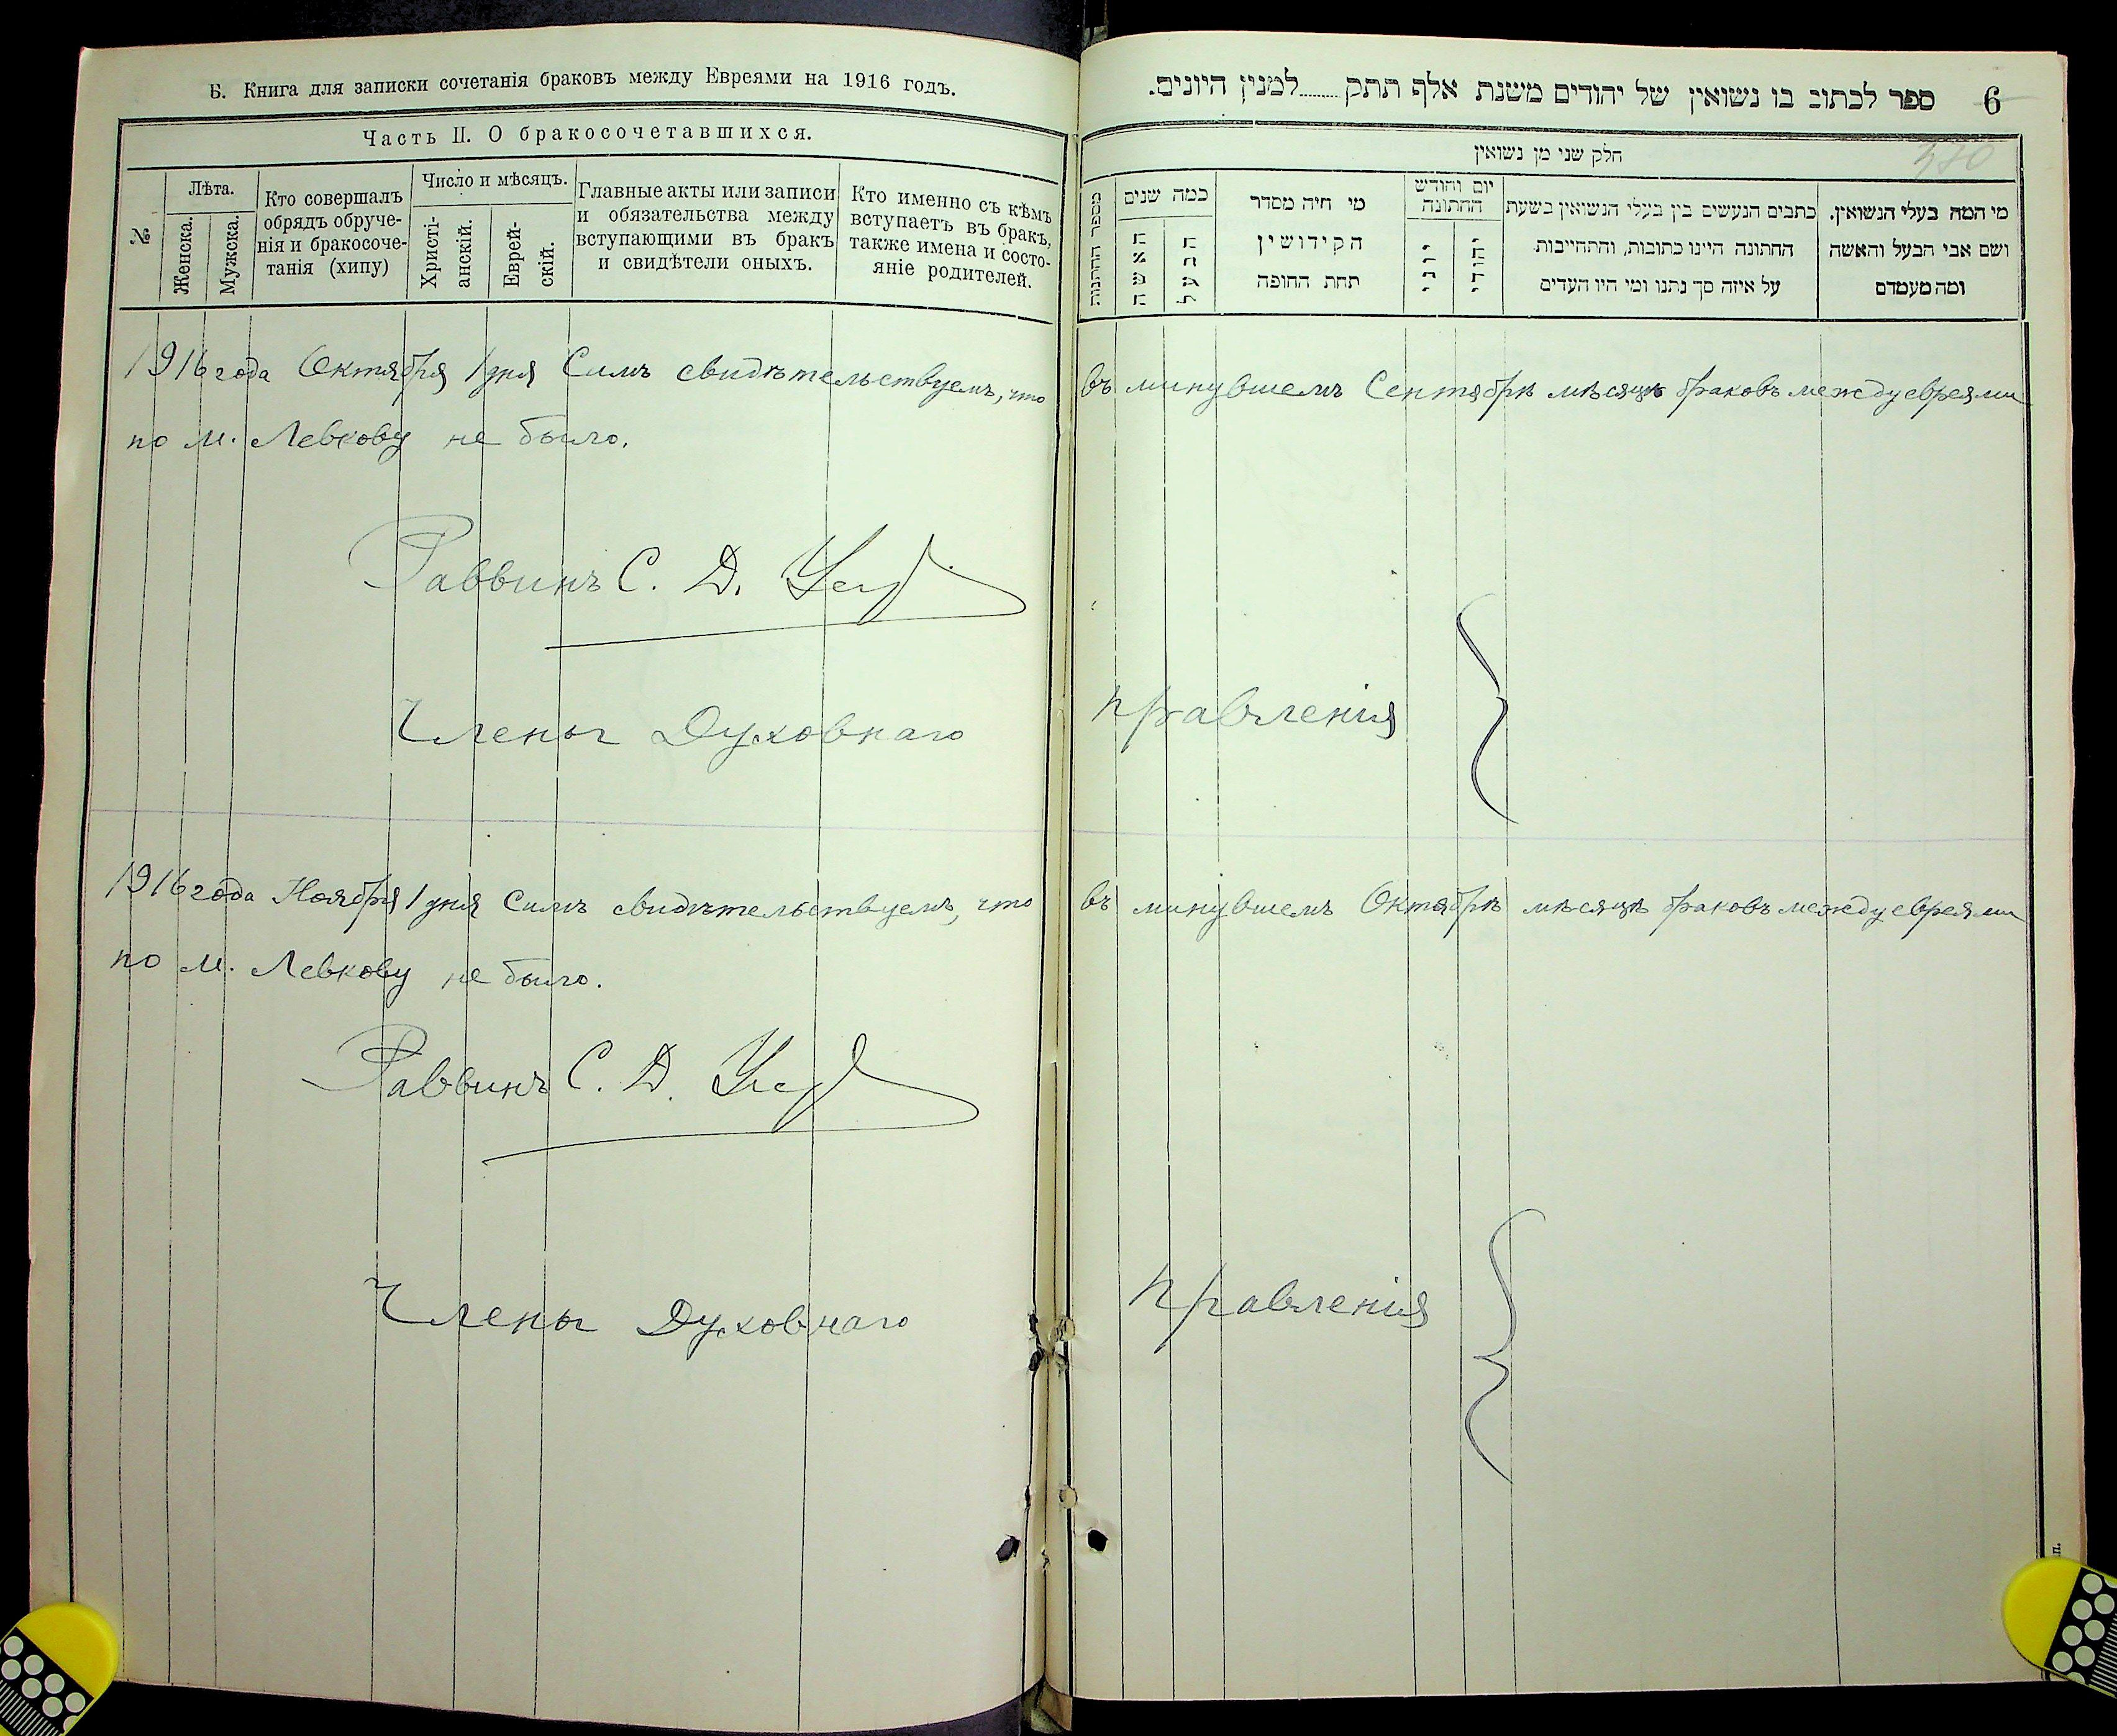 Б. Книга для записки сочетанія браковъ между Евреями на 1916 годъ.
Часть II. О бракосочетавшихся.
№
Лѣта.
Женска.
Мужска.
Кто совершалъ
обрядъ обруче-
нія и бракосоче-
танія (хипу)
Число и мѣсяцъ.
Христі-
анскій.
Еврей-
скій.
Главные акты или записи
и обязательства между
вступающими въ бракъ
и свидѣтели оныхъ.
Кто именно съ кѣмъ
вступаетъ въ бракъ,
также имена и состо-
яніе родителей.
ספר לכתוב בו נשואין של יהודים משנת אלף תתק........למנין היונים.
6
חלק שני מן נשואין
380
מספר החתונות
כמה שנים
האשה
הבעל
מי היה מסדר
הקידושין
תחת החופה
יום וחודש
החתונה
יוני
יהודי
כתבים הנעשים בין בעלי הנשואין בשעת
החתונה היינו כתובות, והתחייבות
על איזה סך נתנו ומי היו העדים
מי המה בעלי הנשואין.
ושם אבי הבעל והאשה
ומה מעמדם
1916 года Октября 1 дня Симъ свидѣтельствуемъ, что въ минувшемъ Сентябрѣ мѣсяцѣ браковъ между евреями
по м. Левкову не было.
Раввинъ С. Д.
Члены Духовнаго правленія
1916 года Ноября 1 дня Симъ свидѣтельствуемъ, что въ минувшемъ Октябрѣ мѣсяцѣ браковъ между евреями
по м. Левкову не было.
Раввинъ С. Д.
Члены Духовнаго правленія